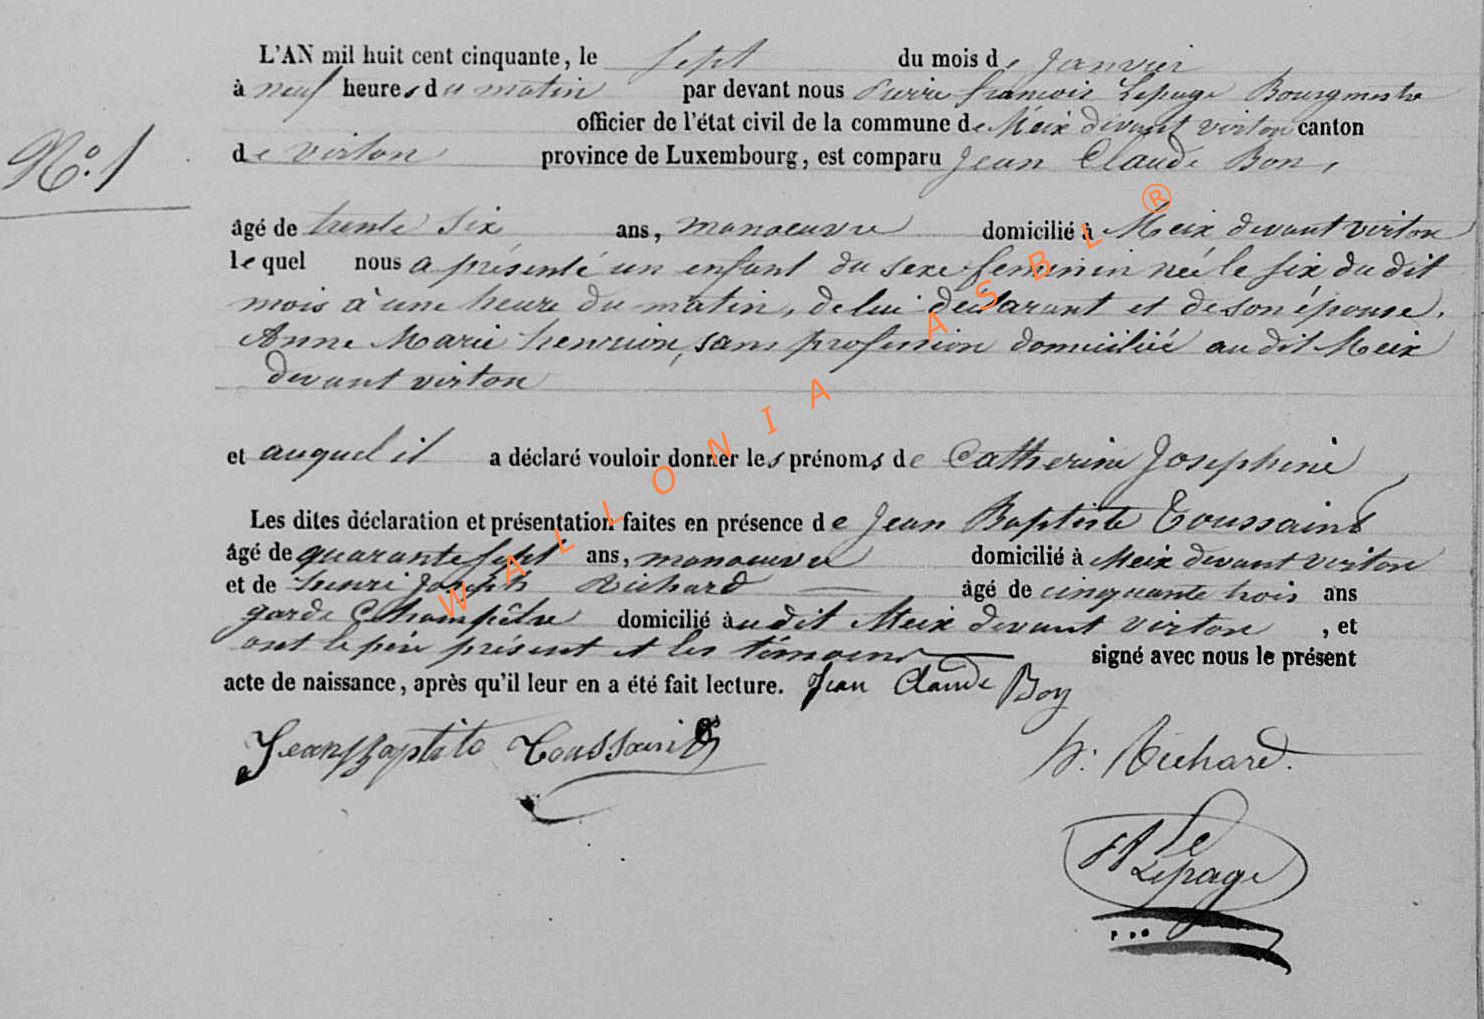 L'AN mil huit cent cinquante, le sept du mois de Janvier
à neuf heures du matin par devant nous Pierre françois Lepage Bourgmestre
officier de l'état civil de la commune de Meix devant virton canton
N.° 1
de virton province de Luxembourg, est comparu Jean Claude Bon,
âgé de trente six ans, manoeuvre domicilié à Meix devant virton
lequel nous a présenté un enfant du sexe feminin née le six du dit
mois à une heure du matin, de lui déclarant et de son épouse,
Anne Marie henrion, sans profession domiciliée au dit Meix
devant virton
et auquel il a déclaré vouloir donner les prénoms de Catherine Josephine
Les dites déclaration et présentation faites en présence de Jean Baptiste Toussaint
âgé de quarante sept ans, manoeuvre domicilié à Meix devant virton
et de henri Joseph Richard âgé de cinquante trois ans
garde Champêtre domicilié audit Meix devant virton , et
ont le père présent et les témoins signé avec nous le présent
acte de naissance, après qu'il leur en a été fait lecture. Jean Claude Bon
Jean Baptite Toussaint
h. Richard.
Lepage
WALLONIA ASBL ®